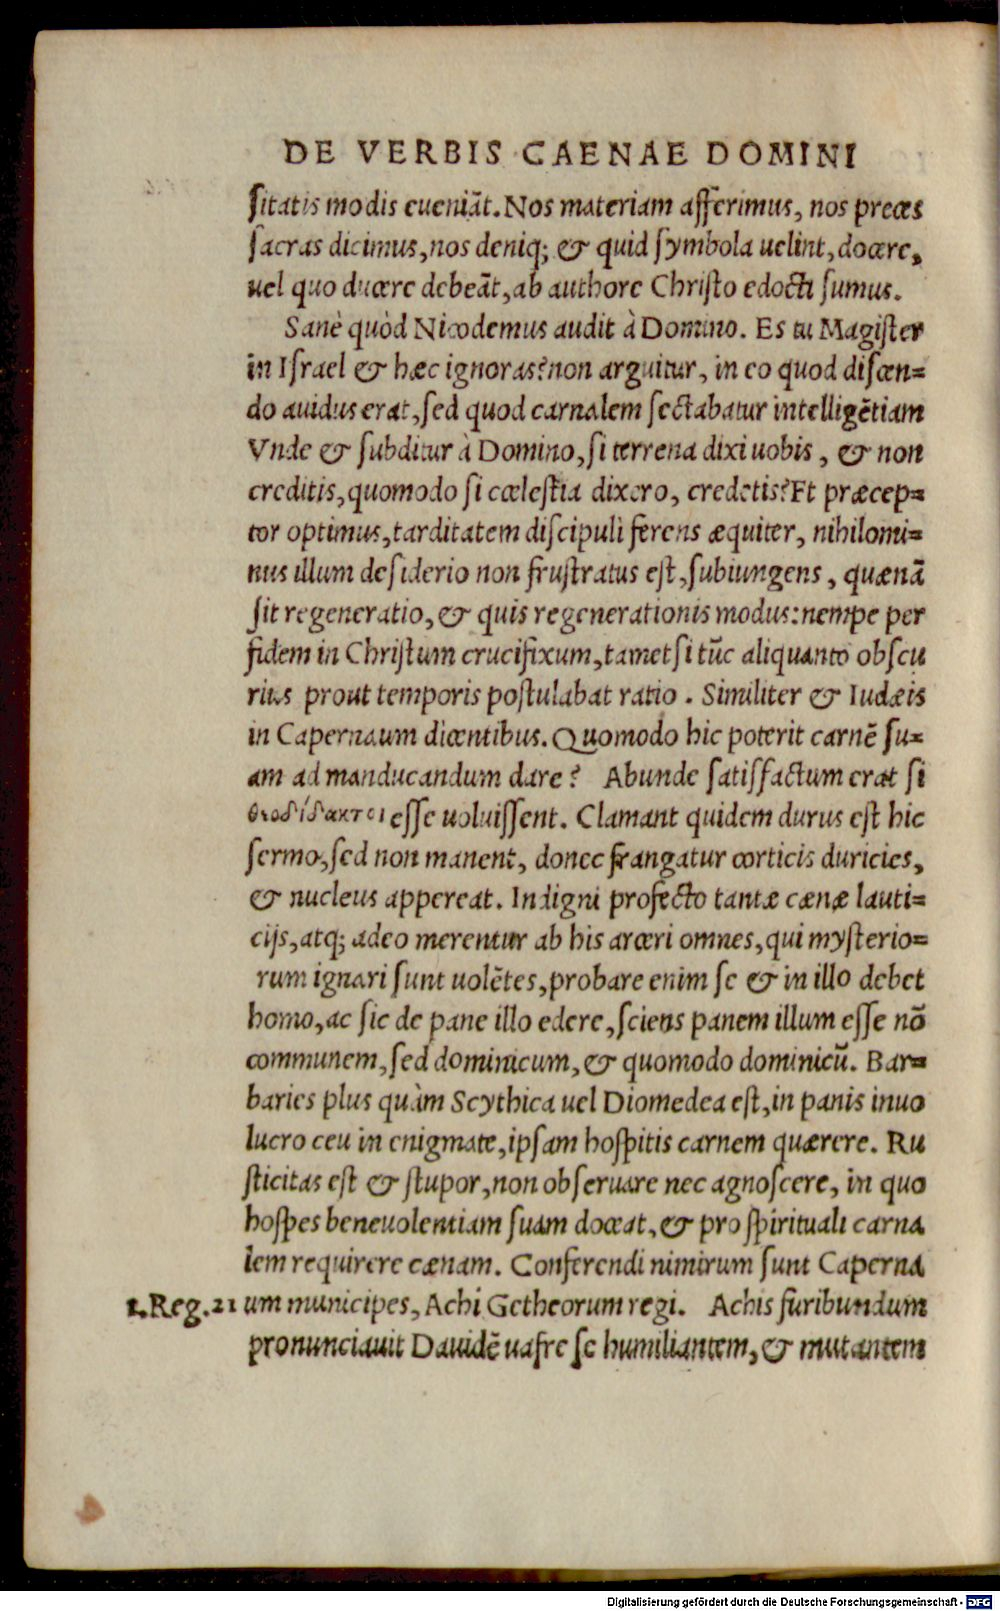 DE VERBIS CAENAE DOMINI
sitatis modis eueniãt. Nos materiam afferimus, nos preces
sacras dicimus, nos deniq; & quid symbola uelint, docere,
uel quo ducere debeãt, ab authore Christo edocti sumus.
Sanè quòd Nicodemus audit à Domino. Es tu Magister
in Israel & hæc ignoras? non arguitur, in eo quod discen=
do auidus erat, sed quod carnalem sectabatur intelligẽtiam
Vnde & subditur à Domino, si terrena dixi uobis, & non
creditis, quomodo si cœlestia dixero, credetis? Et præcep=
tor optimus, tarditatem discipuli ferens æquiter, nihilomi=
nus illum desiderio non frustratus est, subiungens, quænã
sit regeneratio, & quis regenerationis modus: nempe per
fidem in Christum crucifixum, tametsi tũc aliquanto obscu
rius prout temporis postulabat ratio. Similiter & Iudæis
in Capernaum dicentibus. Quomodo hic poterit carnẽ su=
am ad manducandum dare? Abunde satisfactum erat si
θεοδίδακτοι esse uoluissent. Clamant quidem durus est hic
sermo, sed non manent, donec frangatur corticis duricies,
& nucleus appereat. Indigni profecto tantæ cænæ lauti=
cijs, atq; adeo merentur ab his arceri omnes, qui mysterio=
rum ignari sunt uolẽtes, probare enim se & in illo debet
homo, ac sic de pane illo edere, sciens panem illum esse nõ
communem, sed dominicum, & quomodo dominicũ. Bar=
baries plus quàm Scythica uel Diomedea est, in panis inuo
lucro ceu in enigmate, ipsam hospitis carnem quærere. Ru
sticitas est & stupor, non obseruare nec agnoscere, in quo
hospes beneuolentiam suam doceat, & pro spirituali carna
lem requirere cænam. Conferendi nimirum sunt Caperna
1. Reg. 21 um municipes, Achi Getheorum regi. Achis furibundum
pronunciauit Dauidẽ uafre se humiliantem, & mutantem
Digitalisierung gefördert durch die Deutsche Forschungsgemeinschaft - DFG